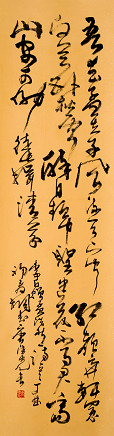 吾爱孟夫子风流天下闻红颜弃轩冕
白首卧松云醉月频中圣迷花不事君高
山安可仰徒此揖清芬
李白赠孟浩然诗